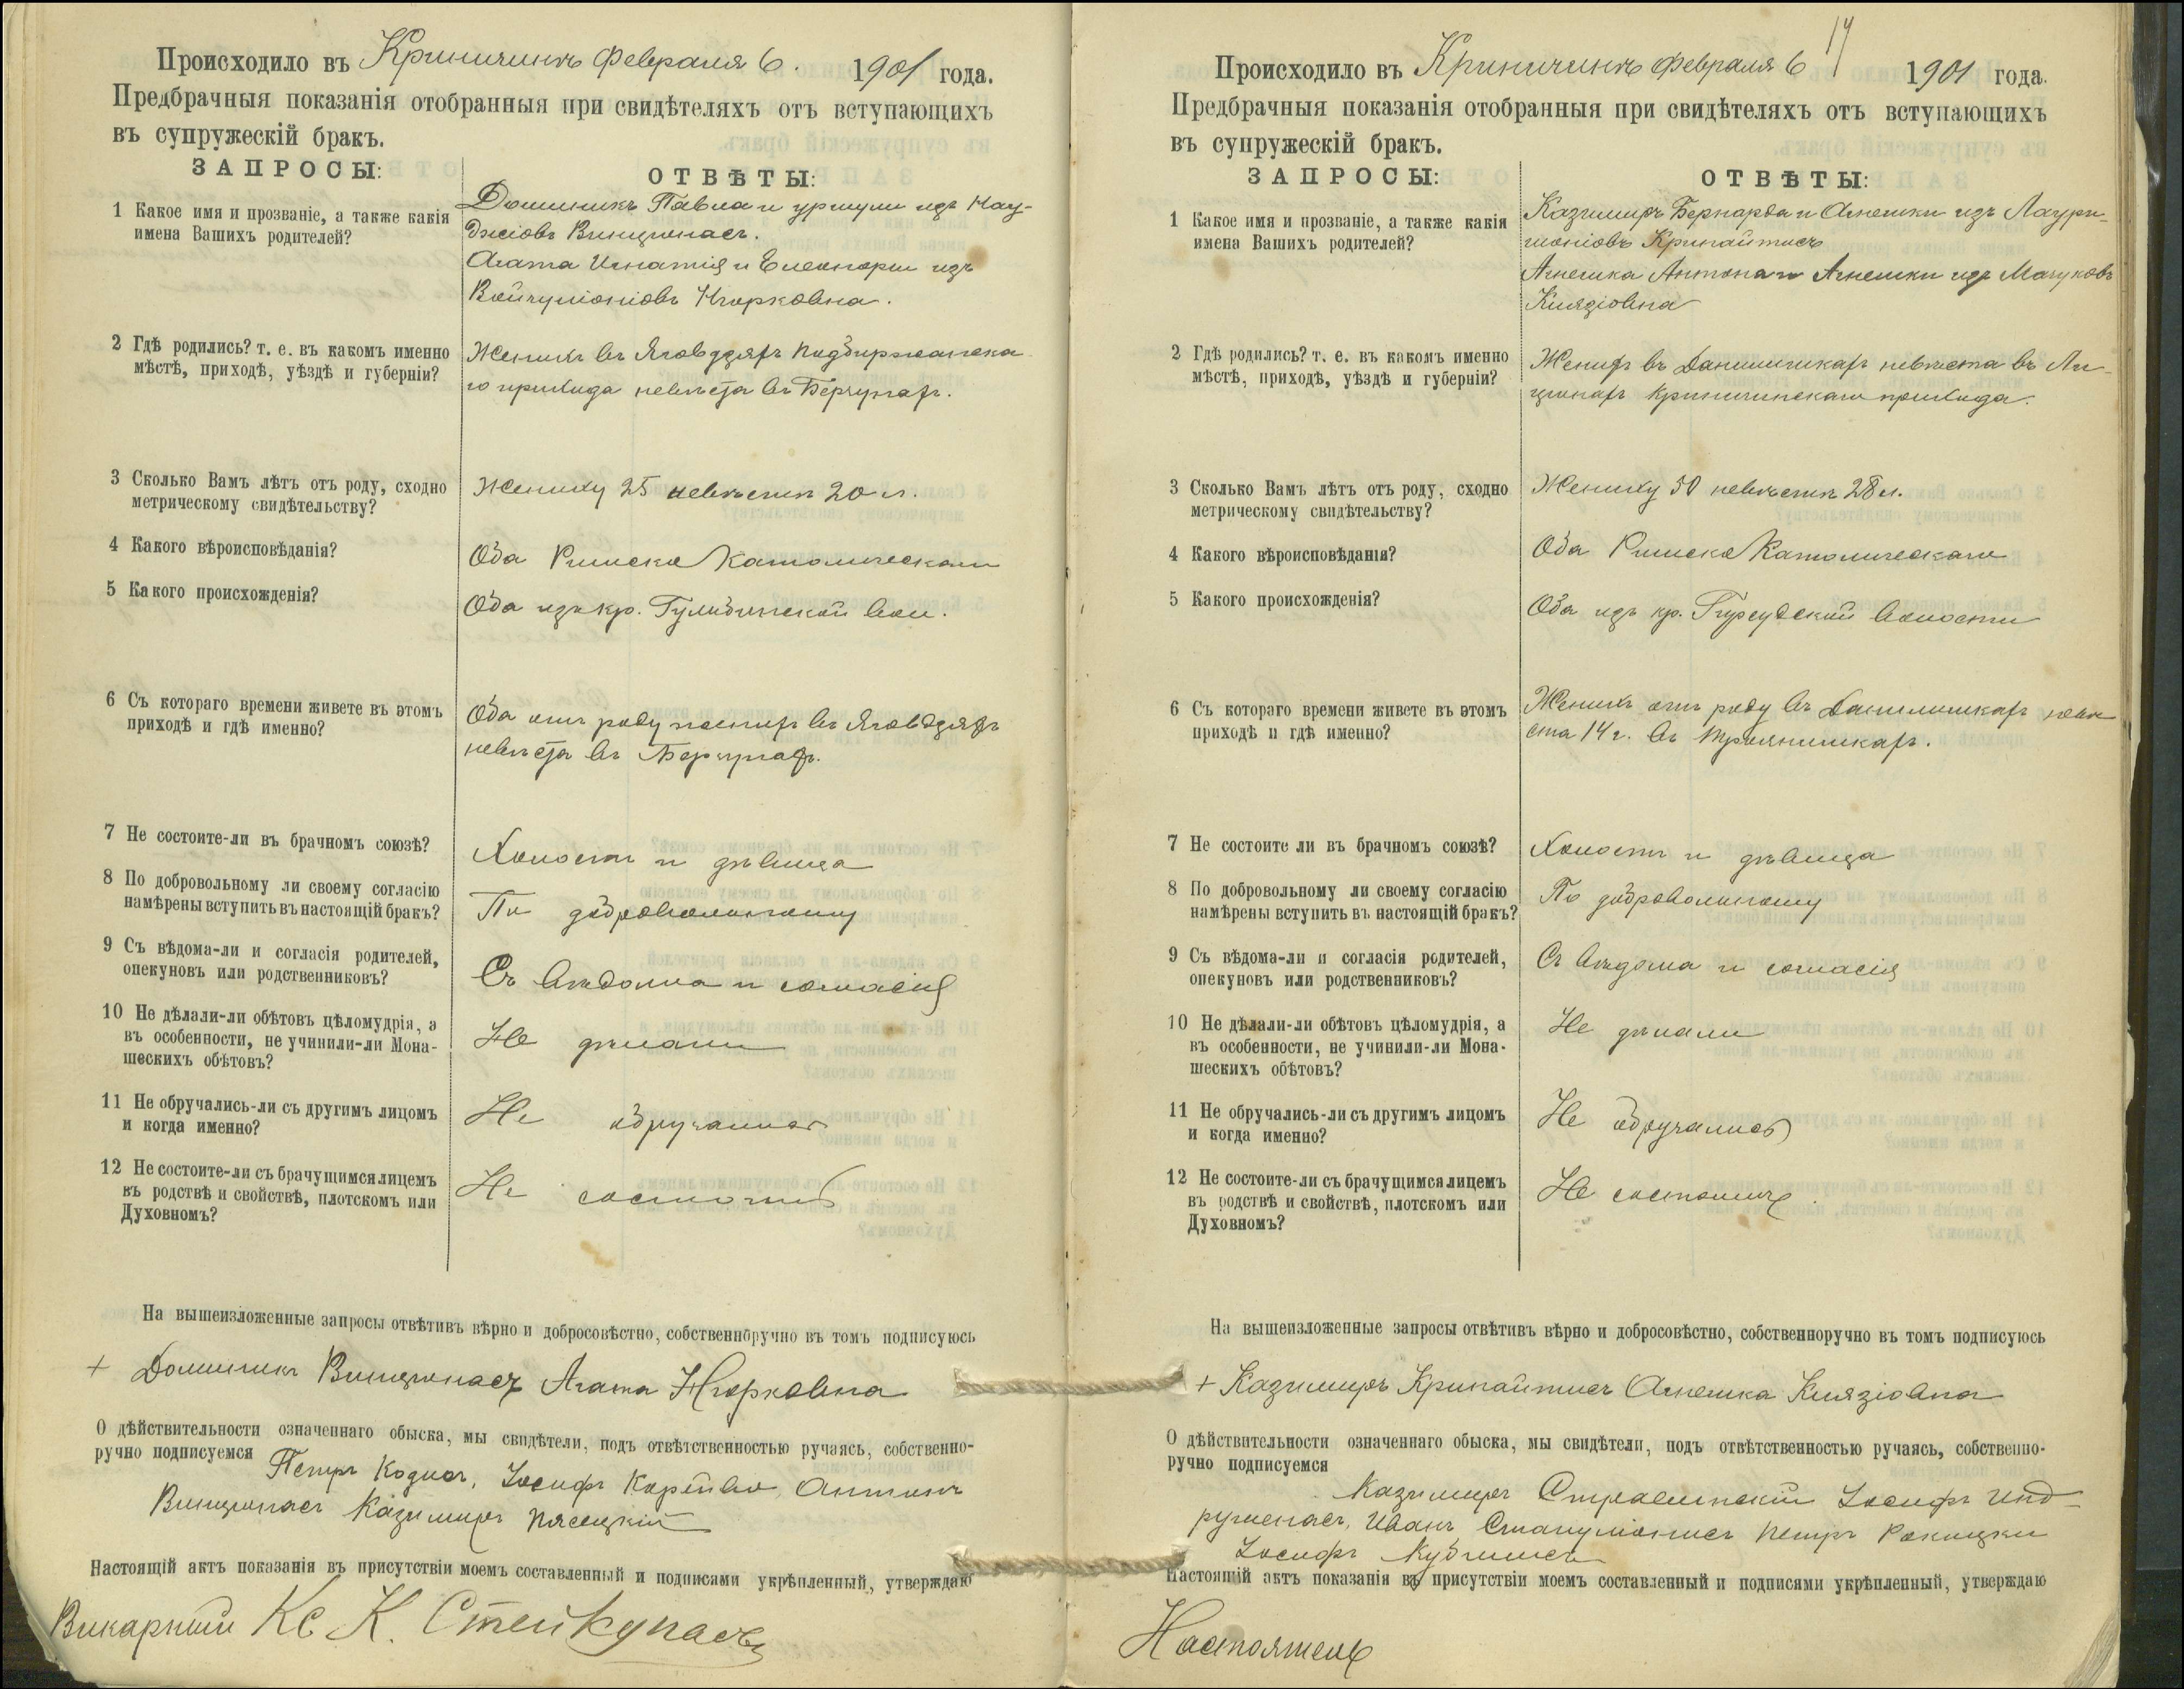 Происходило въ Криничинѣ Февраля 6. 1901 года.
Предбрачныя показанія отобранныя при свидѣтеляхъ отъ вступающихъ
въ супружескій бракъ.
ЗАПРОСЫ:
ОТВѢТЫ:
1 Какое имя и прозваніе, а также какія
имена Вашихъ родителей?
Доминикъ Павла и Уршули изъ Нау-
джіовъ Винцюнасъ.
Агата Игнатія и Елеоноры изъ
Войчуліоніовъ
2 Гдѣ родились? т. е. въ какомъ именно
мѣстѣ, приходѣ, уѣздѣ и губерніи?
Женихъ въ Яговдзяхъ Подбиржанска-
го прихода невѣста въ Берчунахъ.
3 Сколько Вамъ лѣтъ отъ роду, сходно
метрическому свидѣтельству?
Жениху 25 невѣстѣ 20 л.
4 Какого вѣроисповѣданія?
Оба Римско Католическаго
5 Какого происхожденія?
Оба изъ кр. Гулбинской вол.
6 Съ котораго времени живете въ этомъ
приходѣ и гдѣ именно?
Оба отъ роду женихъ въ Яговдзяхъ
невѣста въ Берчунахъ.
7 Не состоите-ли въ брачномъ союзѣ?
Холостъ и дѣвица
8 По добровольному ли своему согласію
намѣрены вступить въ настоящій бракъ?
По добровольному
9 Съ вѣдома-ли и согласія родителей,
опекуновъ или родственниковъ?
Съ вѣдома и согласія
10 Не дѣлали-ли обѣтовъ цѣломудрія, а
въ особенности, не учинили-ли Мона-
шескихъ обѣтовъ?
Не дѣлали
11 Не обручались-ли съ другимъ лицомъ
и когда именно?
Не обручались
12 Не состоите-ли съ брачущимся лицемъ
въ родствѣ и свойствѣ, плотскомъ или
Духовномъ?
Не состоимъ
На вышеизложенные запросы отвѣтивъ вѣрно и добросовѣстно, собственноручно въ томъ подписуюсь
+ Доминикъ Винцюнасъ Агата
О дѣйствительности означеннаго обыска, мы свидѣтели, подъ отвѣтственностью ручаясь, собственно-
ручно подписуемся Петръ Іосифъ Антонъ
Винцюнасъ Казимиръ Пясецкій
Настоящій актъ показанія въ присутствіи моемъ составленный и подписями укрѣпленный, утверждаю
Викарный Кс К. Стейкунасъ
14
Происходило въ Криничинѣ Февраля 6 1901 года.
Предбрачныя показанія отобранныя при свидѣтеляхъ отъ вступающихъ
въ супружескій бракъ.
ЗАПРОСЫ:
ОТВѢТЫ:
1 Какое имя и прозваніе, а также какія
имена Вашихъ родителей?
Казимиръ Бернарда и Агнешки изъ Лаури-
нюніовъ Кринайтисъ
Агнешка Антона и Агнешки изъ Мачуковъ
Князіовна
2 Гдѣ родились? т. е. въ какомъ именно
мѣстѣ, приходѣ, уѣздѣ и губерніи?
Женихъ въ Данилишкахъ невѣста въ Ли-
цюнахъ Криничинскаго прихода.
3 Сколько Вамъ лѣтъ отъ роду, сходно
метрическому свидѣтельству?
Жениху 50 невѣстѣ 28 л.
4 Какого вѣроисповѣданія?
Оба Римско Католическаго
5 Какого происхожденія?
Оба изъ кр. Гирсудской волости
6 Съ котораго времени живете въ этомъ
приходѣ и гдѣ именно?
Женихъ отъ роду въ Данилишкахъ невѣ-
ста 14 г. въ Троянишкахъ.
7 Не состоите ли въ брачномъ союзѣ?
Холостъ и дѣвица
8 По добровольному ли своему согласію
намѣрены вступить въ настоящій бракъ?
По добровольному
9 Съ вѣдома-ли и согласія родителей,
опекуновъ или родственниковъ?
Съ вѣдома и согласія
10 Не дѣлали-ли обѣтовъ цѣломудрія, а
въ особенности, не учинили-ли Мона-
шескихъ обѣтовъ?
Не дѣлали
11 Не обручались-ли съ другимъ лицомъ
и когда именно?
Не обручались
12 Не состоите-ли съ брачущимся лицемъ
въ родствѣ и свойствѣ, плотскомъ или
Духовномъ?
Не состоимъ
На вышеизложенные запросы отвѣтивъ вѣрно и добросовѣстно, собственноручно въ томъ подписуюсь
+ Казимиръ Кринайтисъ Агнешка Князіовна
О дѣйствительности означеннаго обыска, мы свидѣтели, подъ отвѣтственностью ручаясь, собственно-
ручно подписуемся
Казимиръ Страшинскій Іосифъ Инд-
рушенасъ, Иванъ Стапулёнисъ Петръ Рокицки
Іосифъ Кубилисъ
Настоящій актъ показанія въ присутствіи моемъ составленный и подписями укрѣпленный, утверждаю
Настоятель